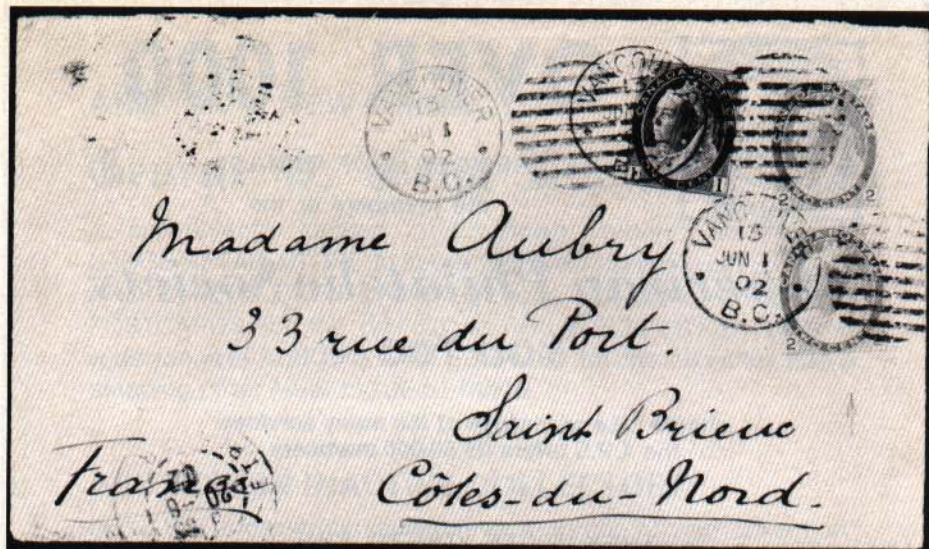 VANCOUVER
15
JUN 1
02
B.C.
VANCOUVER
CANADA POSTAGE
1 1
2 2
VANCOUVER
15
JUN 1
02
B.C.
2
Madame Aubry
33 rue du Port.
Saint Brieuc
France
Côtes-du-Nord.